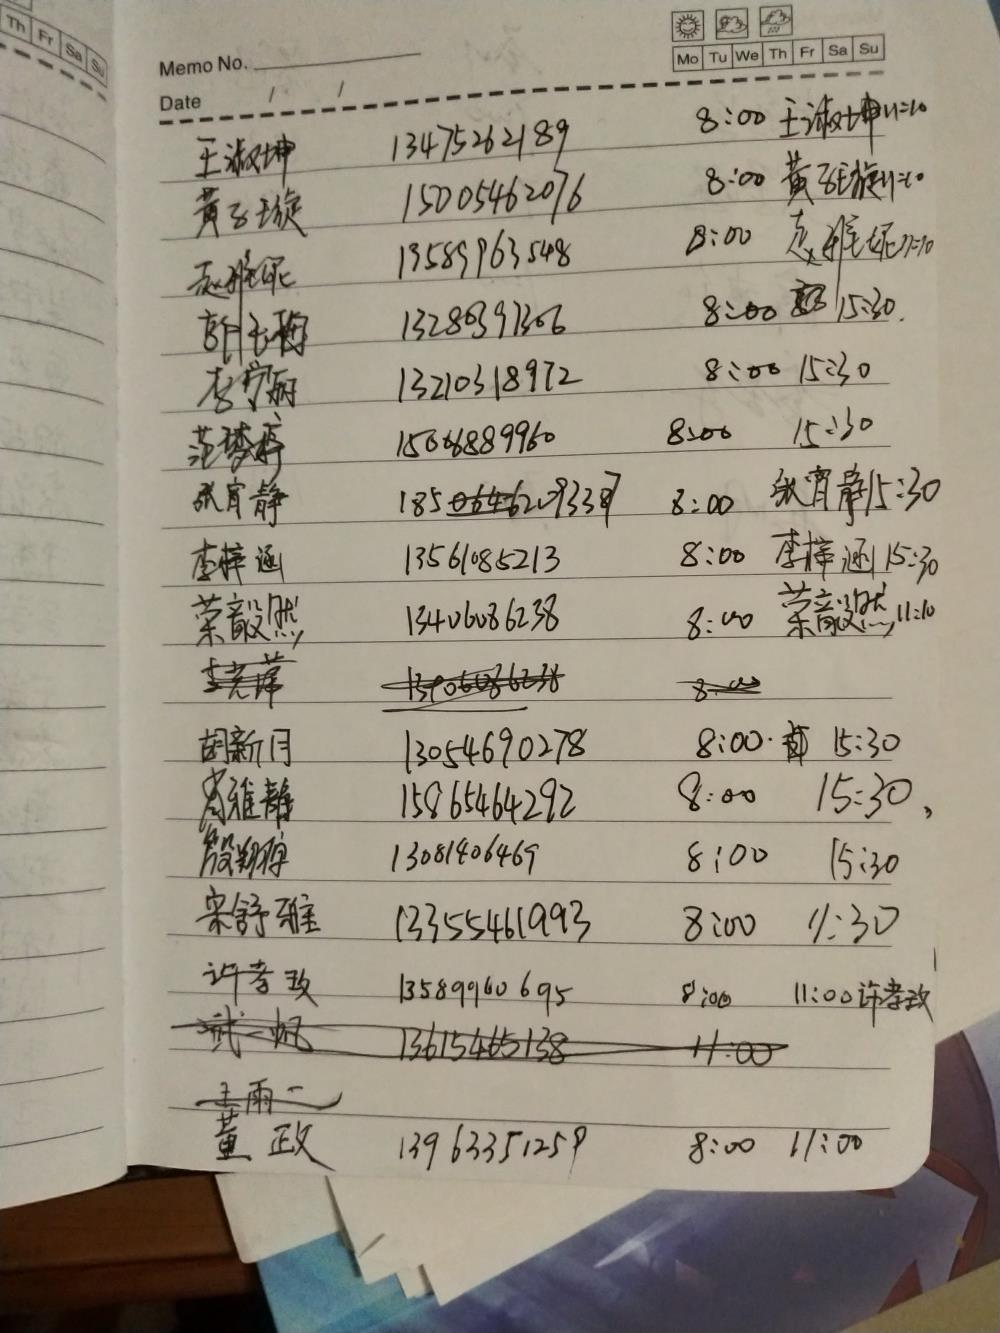 Th Fr Sa Su
Memo No.
Mo Tu We Th Fr Sa Su
Date / /
王淑坤 13475262189 8:00 王淑坤 11:10
黄子璇 15005462076 8:00 黄子璇 11:10
赵雅妮 13589963548 8:00 赵雅妮 11:10
郭玉梅 13280391306 8:00 15:30.
李宁丽 13210318972 8:00 15:30
范梦婷 15066889960 8:00 15:30
张宵静 185 0646209337 8:00 张宵静 15:30
李梓涵 13561085213 8:00 李梓涵 15:30
荣毅然 13406086238 8:00 荣毅然 11:10
13406086238 8:00
胡新月 13054690278 8:00 15:30
肖雅静 15865464292 8:00 15:30,
殷翔琼 13081406469 8:00 15:30
宋舒雅 13355461993 8:00 11:30
许孝政 13589960695 8:00 11:00 许孝政
武一帆 13615465138 11:00
王雨一
黄政 13963351259 8:00 11:00